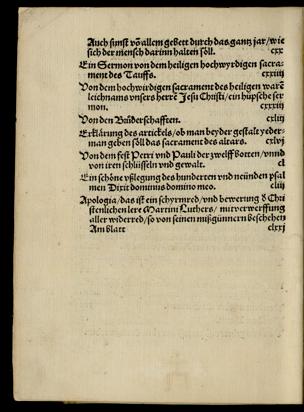 Auch sunst võ allem gebett durch das gantz jar/ wie
sich der mensch darinn halten soll. cxx
Ein Sermon von dem heiligen hochwyrdigen sacra-
ment des Tauffs. cxxiij
Von dem hochwirdigen sacrament des heiligen warē
leichnams vnsers herrē Jesu Christi/ ein hüpsche ser
mon. cxxxiij
Von den Brůderschafften. cxliij
Erklärung des artickels/ ob man beyder gestalt yeder-
man geben soll das sacrament des altars. cxlvj
Von dem fest Petri vnd Pauli der zwelff botten/ vnnd
von iren schlüsseln vnd gewalt. clj
Ein schöne vßlegung des hunderten vnd neünden psal
men Dixit dominus domino meo. cliij
Apologia/ das ist ein schyrmred/ vnd bewerung d Chri
stenlichen lere Martini Luthers/ mit verwerffung
aller widerred/ so von seinen mißgünnern beschehen
Am blatt clxxj